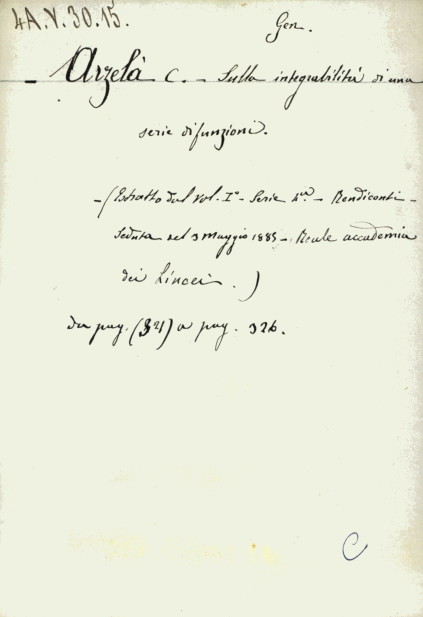 4A.V.30.15.
Gen.
- Arzelà C. - Sulla integrabilità di una
serie di funzioni.
- (Estratto dal vol. I° - Serie 4ª - Rendiconti -
Seduta del 3 Maggio 1885 - Reale accademia
dei Lincei.)
da pag. (321) a pag. 326.
C